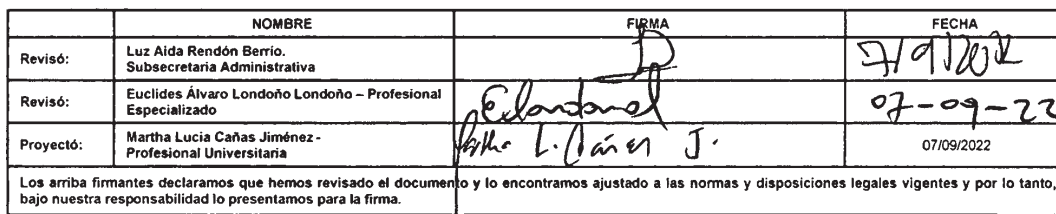 NOMBRE FIRMA FECHA
Revisó: Luz Aida Rendón Berrío.
Subsecretaria Administrativa
7/9/2022
Revisó: Euclides Álvaro Londoño Londoño – Profesional
Especializado
07-09-22
Proyectó: Martha Lucia Cañas Jiménez -
Profesional Universitaria
L. Cañas J.
07/09/2022
Los arriba firmantes declaramos que hemos revisado el documento y lo encontramos ajustado a las normas y disposiciones legales vigentes y por lo tanto,
bajo nuestra responsabilidad lo presentamos para la firma.